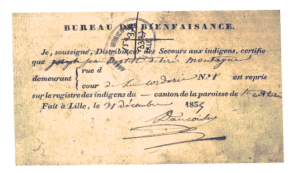 BUREAU DE BIENFAISANCE.
Je, soussigné, Distributeur des Secours aux indigens, certifie
que joseph jean Baptiste désiré montagne
demeurant rue d
cour de la corderie N.º 1 est repris
sur le registre des indigens du — canton de la paroisse de
Fait à Lille, le 11 décembre 1835